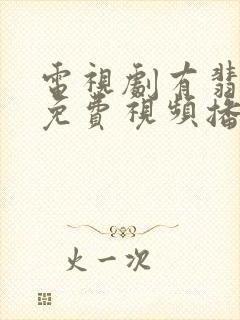 電視劇有翡
免費視頻播
火一次